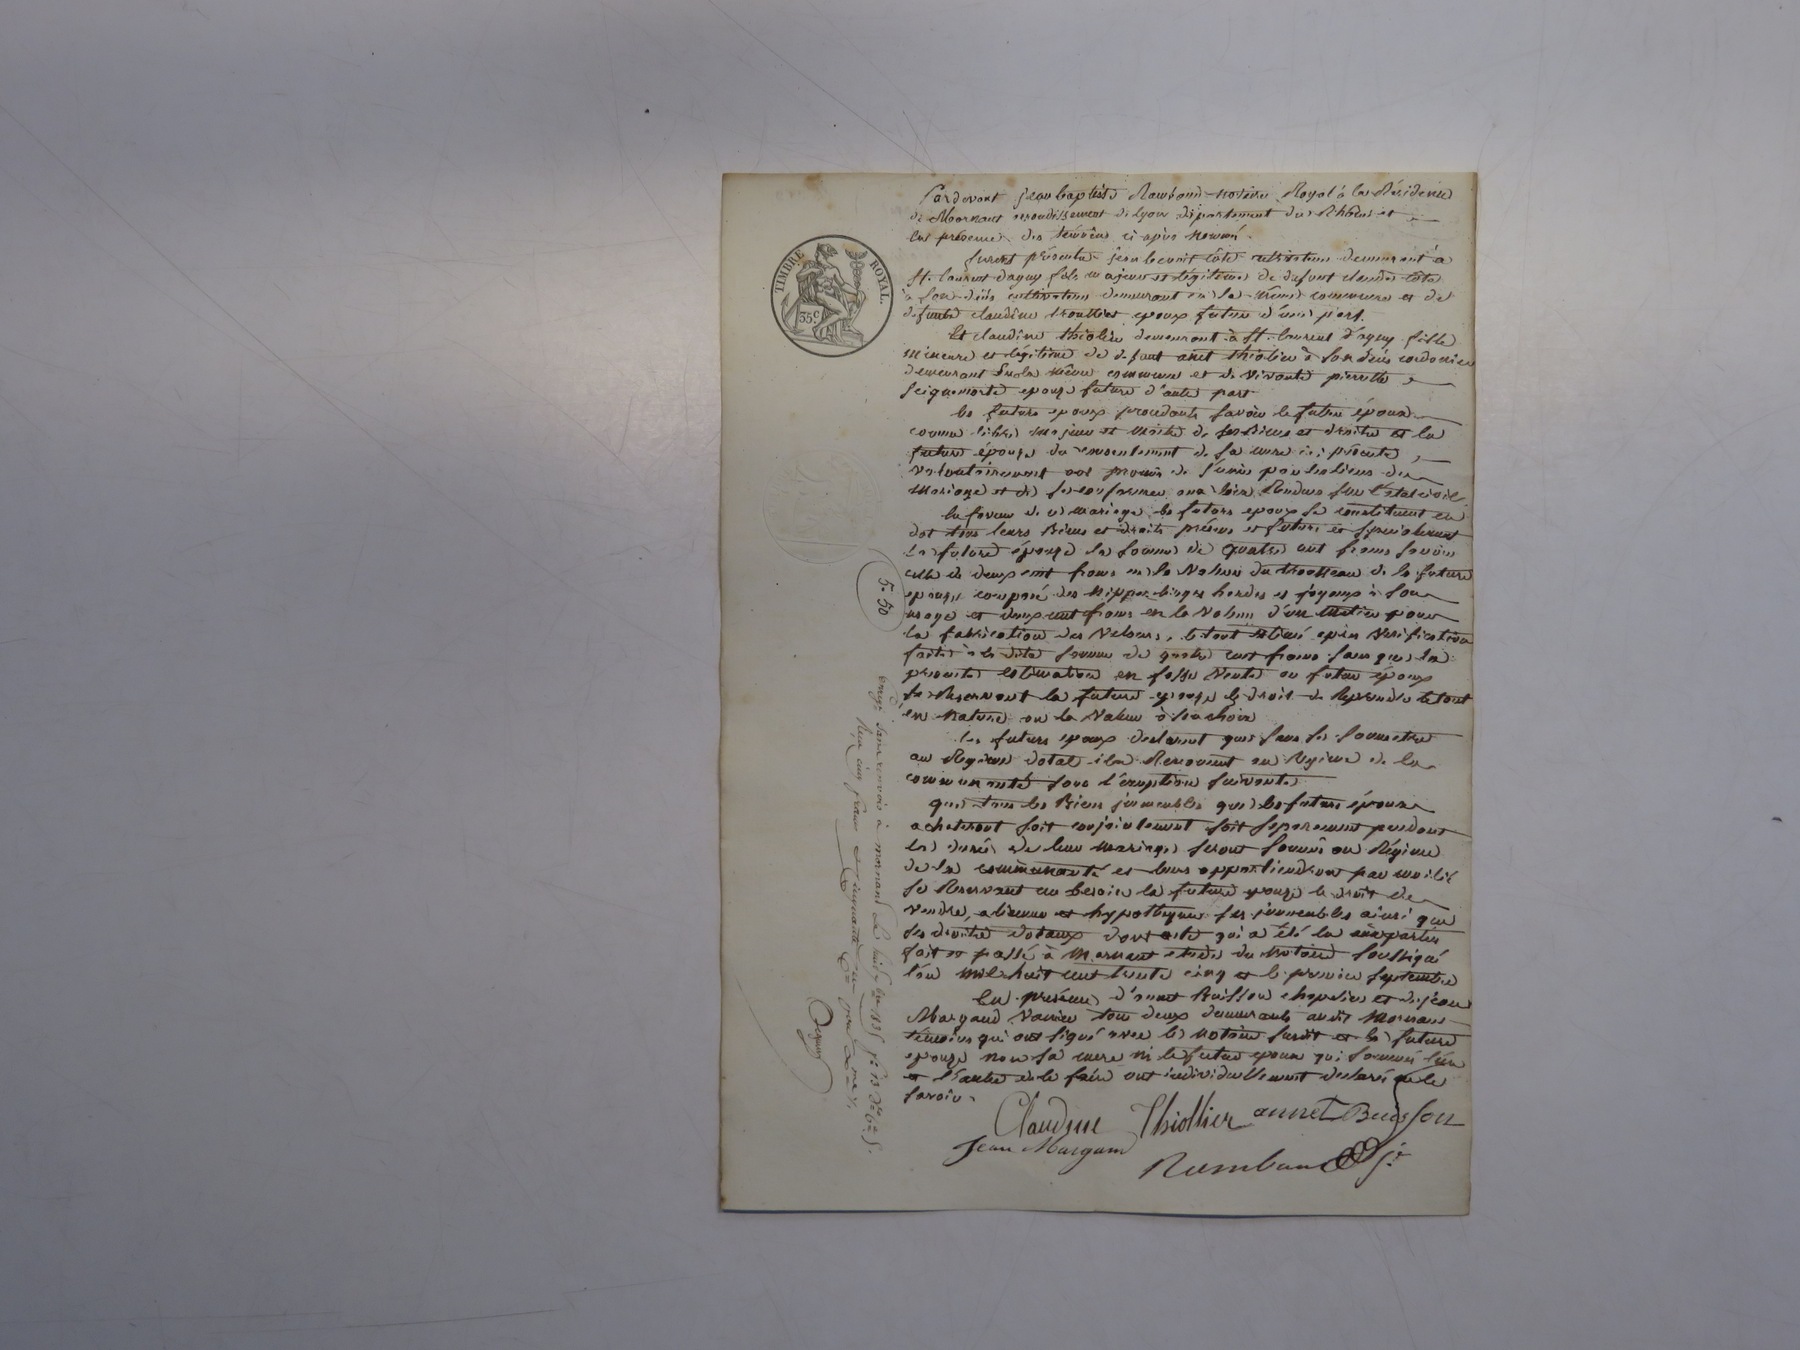 TIMBRE ROYAL.
35 c
Pardevant jean baptiste Rambaud notaire Royal à la Résidence
de Mornant arrondissement de lyon département du Rhône et
en présence des témoins ci après nommés.
furent présents jean benoit côte cultivateur demeurant à
St. laurent dagny fils majeur et légitime de défunt claude côte
à son décès cultivateur demeurant en la même commune et de
défunte claudine époux futur d'une part.
Et claudine thiolier demeurant à St. laurent d'agny fille
mineure et légitime de defunt anet thiolier à son décès cordonnier
demeurant en la même commune et de vivante pierrette
épouse future d'autre part
les futurs époux procédants savoir le futur époux
comme libre majeur et maitre de ses Biens et droits et la
future épouse du consentement de sa mere ici présente
volontairement ont promis de s'unir par les liens du
Mariage et de se conformer aux lois Rendues sur l'état civil
En faveur de ce mariage les futurs époux se constituent en
dot tous leurs Biens et droits présens et futurs et specialement
la future épouse la somme de quatre cent francs savoir
celle de deux cent francs en la valeur du trousseau de la future
épouse composé des nippes linges hardes et joyaux à son
usage et deux cent francs en la valeur d'un métier pour
la fabrication des velours, le tout estimé après vérification
faite à la dite somme de quatre cent francs sans que la
présente estimation en fasse vente au futur époux
se Reservant la future épouse le droit de Reprendre le tout
en nature ou la valeur à son choix
les futurs epoux déclarent que sans se soumettre
au Régime dotal ils Renoncent au Régime de la
communauté sous l'exception suivante
que tous les Biens immeubles que les futurs époux
acheteront soit conjointement soit séparement pendant
la durée de leur mariage seront soumis au Régime
de la communauté et leurs appartiendront par moitié
se Reservant au besoin la future épouse le droit de
vendre, aliéner et hypothequer ses immeubles ainsi que
ses droits dotaux dont acte qui a été lu aux parties
fait et passé à Mornant étude du notaire soussigné
l'an mil huit cent trente cinq et le premier septembre
En présence d'annet Buisson chapelier et de jean
Margand tous deux demeurants audit Mornant
témoins qui ont signé avec le notaire susdit et la future
épouse non sa mere ni le futur époux qui sommés l'un
et l'autre de le faire ont individuellement declaré ne le
savoir.
Claudine Thiollier annet Buisson
Jean Margand
Rambaud
5.50
enrg. sans renvois à mornant le huit 7bre 1835 fo 13
Reçu cinq francs cinquante